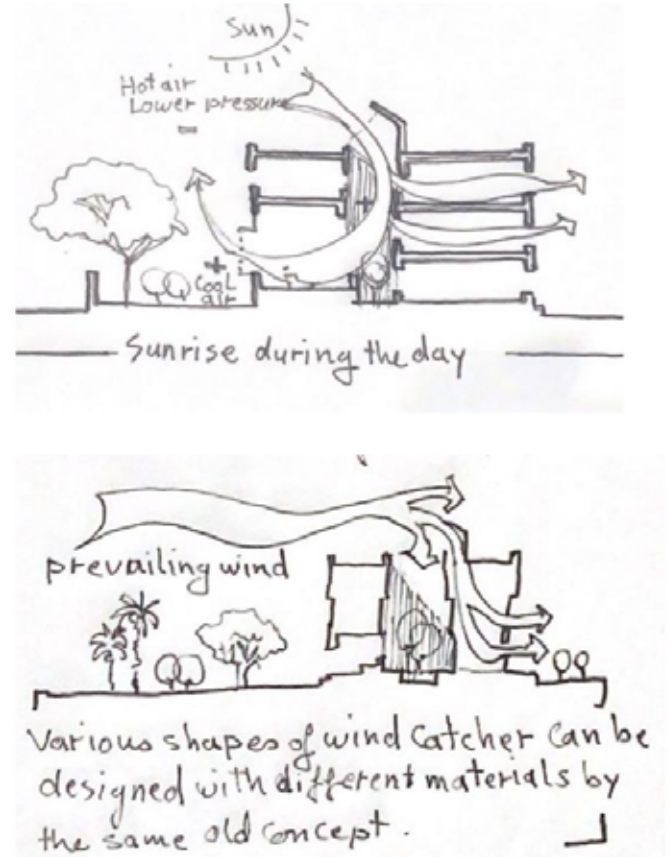 Sun
Hot air
Lower pressure
-
+
Cool
air
Sunrise during the day
prevailing wind
Various shapes of wind catcher can be
designed with different materials by
the same old concept.